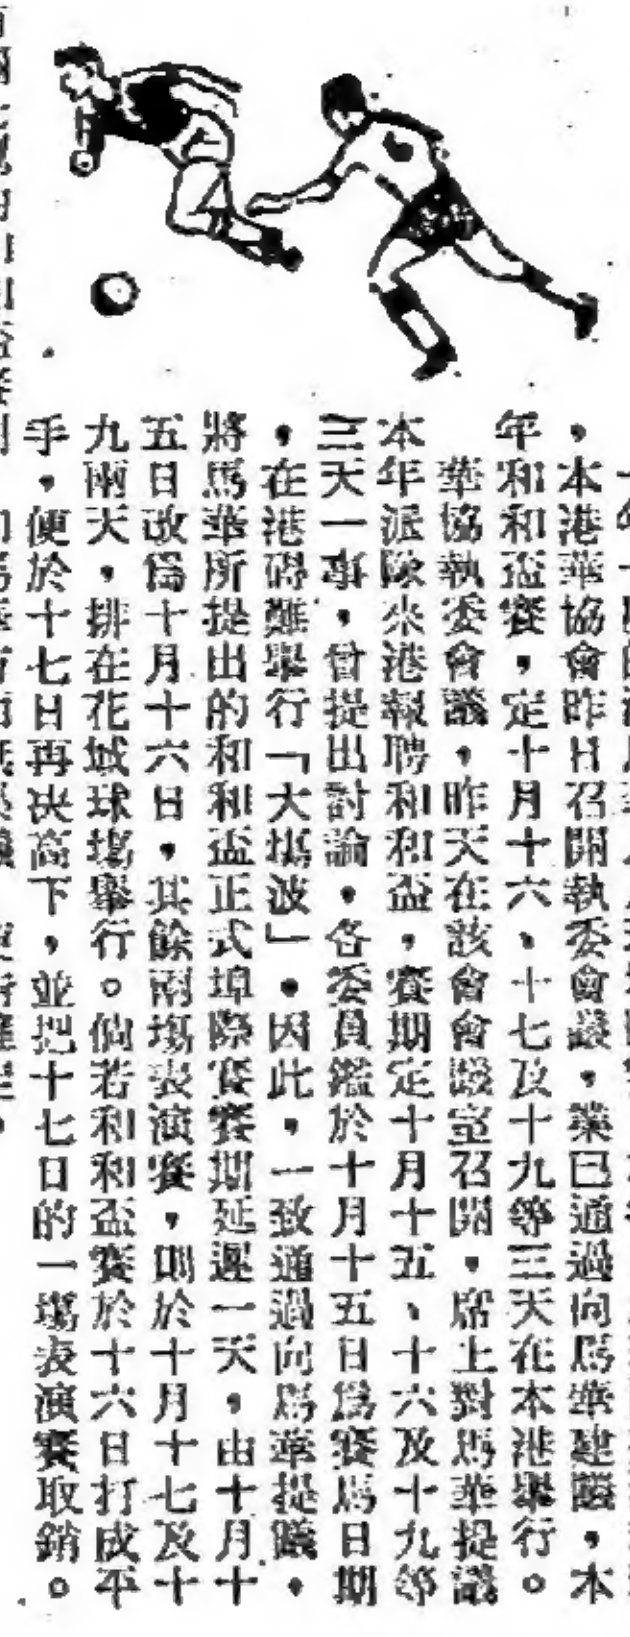 ，本港華協會昨日召開執委會議，業已通過向馬華建議，本
年和和盃賽，定十月十六、十七及十九等三天在本港舉行。
華協執委會議，昨天在該會會議室召開，席上對馬華提議
本年派隊來港報聘和和盃，賽期定十月十五、十六及十九等
三天一事，曾提出討論，各委員鑑於十月十五日爲賽馬日期
，在港碍難舉行「大塲波」，因此，一致通過向馬華提議，
將馬華所提出的和和盃正式埠際賽賽期延遲一天，由十月十
五日改爲十月十六日，其餘兩塲表演賽，則於十月十七及十
九兩天，排在花城球塲舉行。倘若和和盃賽於十六日打成平
手，便於十七日再决高下，並把十七日的一塲表演賽取銷。